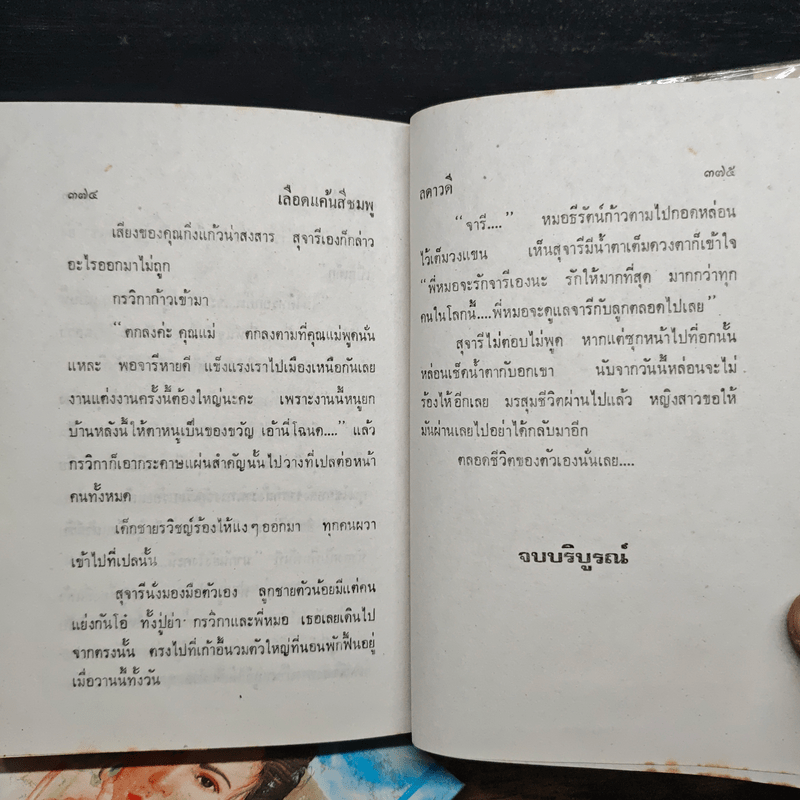 ๓๗๔
เลือดแค้นสีชมพู
เสียงของคุณกิ่งแก้วน่าสงสาร สุจารีเองก็กล่าว
อะไรออกมาไม่ถูก
กรวิกาก้าวเข้ามา
“ตกลงค่ะ คุณแม่ ตกลงตามที่คุณแม่พูดนั่น
แหละ พอจารีหายดี แข็งแรงเราไปเมืองเหนือกันเลย
งานแต่งงานครั้งนี้ต้องใหญ่นะคะ เพราะงานนี้หนูยก
บ้านหลังนี้ให้ตาหนูเป็นของขวัญ เอ้านี่โฉนด....” แล้ว
กรวิกาก็เอากระดาษแผ่นสำคัญนั้นไปวางที่เปลต่อหน้า
คนทั้งหมด
เด็กชายรวิชญ์ร้องไห้แงๆ ออกมา ทุกคนผวา
เข้าไปที่เปลนั้น
สุจารีนั่งมองมือตัวเอง ลูกชายตัวน้อยมีแต่คน
แย่งกันโอ๋ ทั้งปู่ย่า กรวิกาและพี่หมอ เธอเลยเดินไป
จากตรงนั้น ตรงไปที่เก้าอี้นวมตัวใหญ่ที่นอนพักฟื้นอยู่
เมื่อวานนี้ทั้งวัน
๓๗๕
ลดาวดี
“จารี....” หมอธีรัตน์ก้าวตามไปกอดหล่อน
ไว้เต็มวงแขน เห็นสุจารีมีน้ำตาเต็มดวงตาก็เข้าใจ
“พี่หมอจะรักจารีเองนะ รักให้มากที่สุด มากกว่าทุก
คนในโลกนี้....พี่หมอจะดูแลจารีกับลูกตลอดไปเลย”
สุจารีไม่ตอบไม่พูด หากแต่ซุกหน้าไปที่อกนั้น
หล่อนเช็ดน้ำตากับอกเขา นับจากวันนี้หล่อนจะไม่
ร้องไห้อีกเลย มรสุมชีวิตผ่านไปแล้ว หญิงสาวขอให้
มันผ่านเลยไปอย่าได้กลับมาอีก
ตลอดชีวิตของตัวเองนั่นเลย....
จบบริบูรณ์